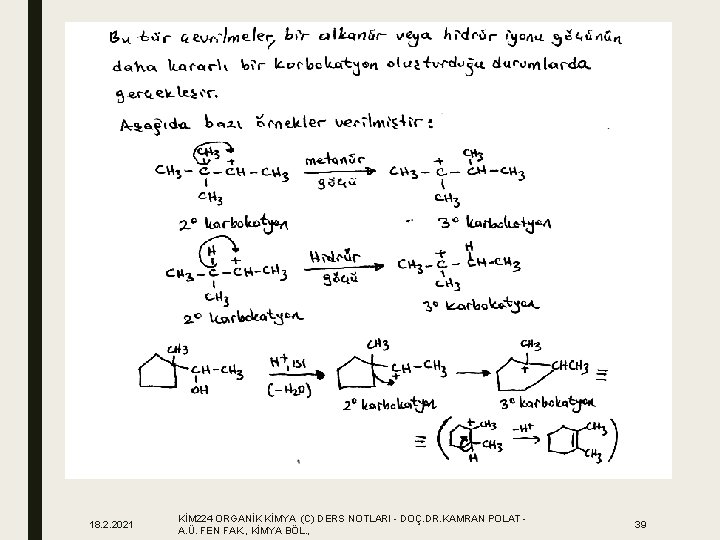 Bu tür çevrilmeler, bir alkanür veya hidrür iyonu göçünün
daha kararlı bir karbokatyon oluşturduğu durumlarda
gerçekleşir.
Aşağıda bazı örnekler verilmiştir:
CH3 CH3
CH3-C-CH-CH3 metanür göçü CH3-C-CH-CH3
+ +
CH3 CH3
2° karbokatyon 3° karbokatyon
H H
CH3-C-CH-CH3 Hidrür göçü CH3-C-CH-CH3
+ +
CH3 CH3
2° karbokatyon 3° karbokatyon
CH3 CH3 CH3
CH-CH3 H+, ısı CH-CH3 CHCH3 ≡
OH (-H2O) + +
2° karbokatyon 3° karbokatyon
≡ ( + CH3 -H+ CH3 )
C CH3 CH3
H
18.2.2021
KİM224 ORGANİK KİMYA (C) DERS NOTLARI - DOÇ.DR.KAMRAN POLAT -
A.Ü. FEN FAK., KİMYA BÖL.,
39